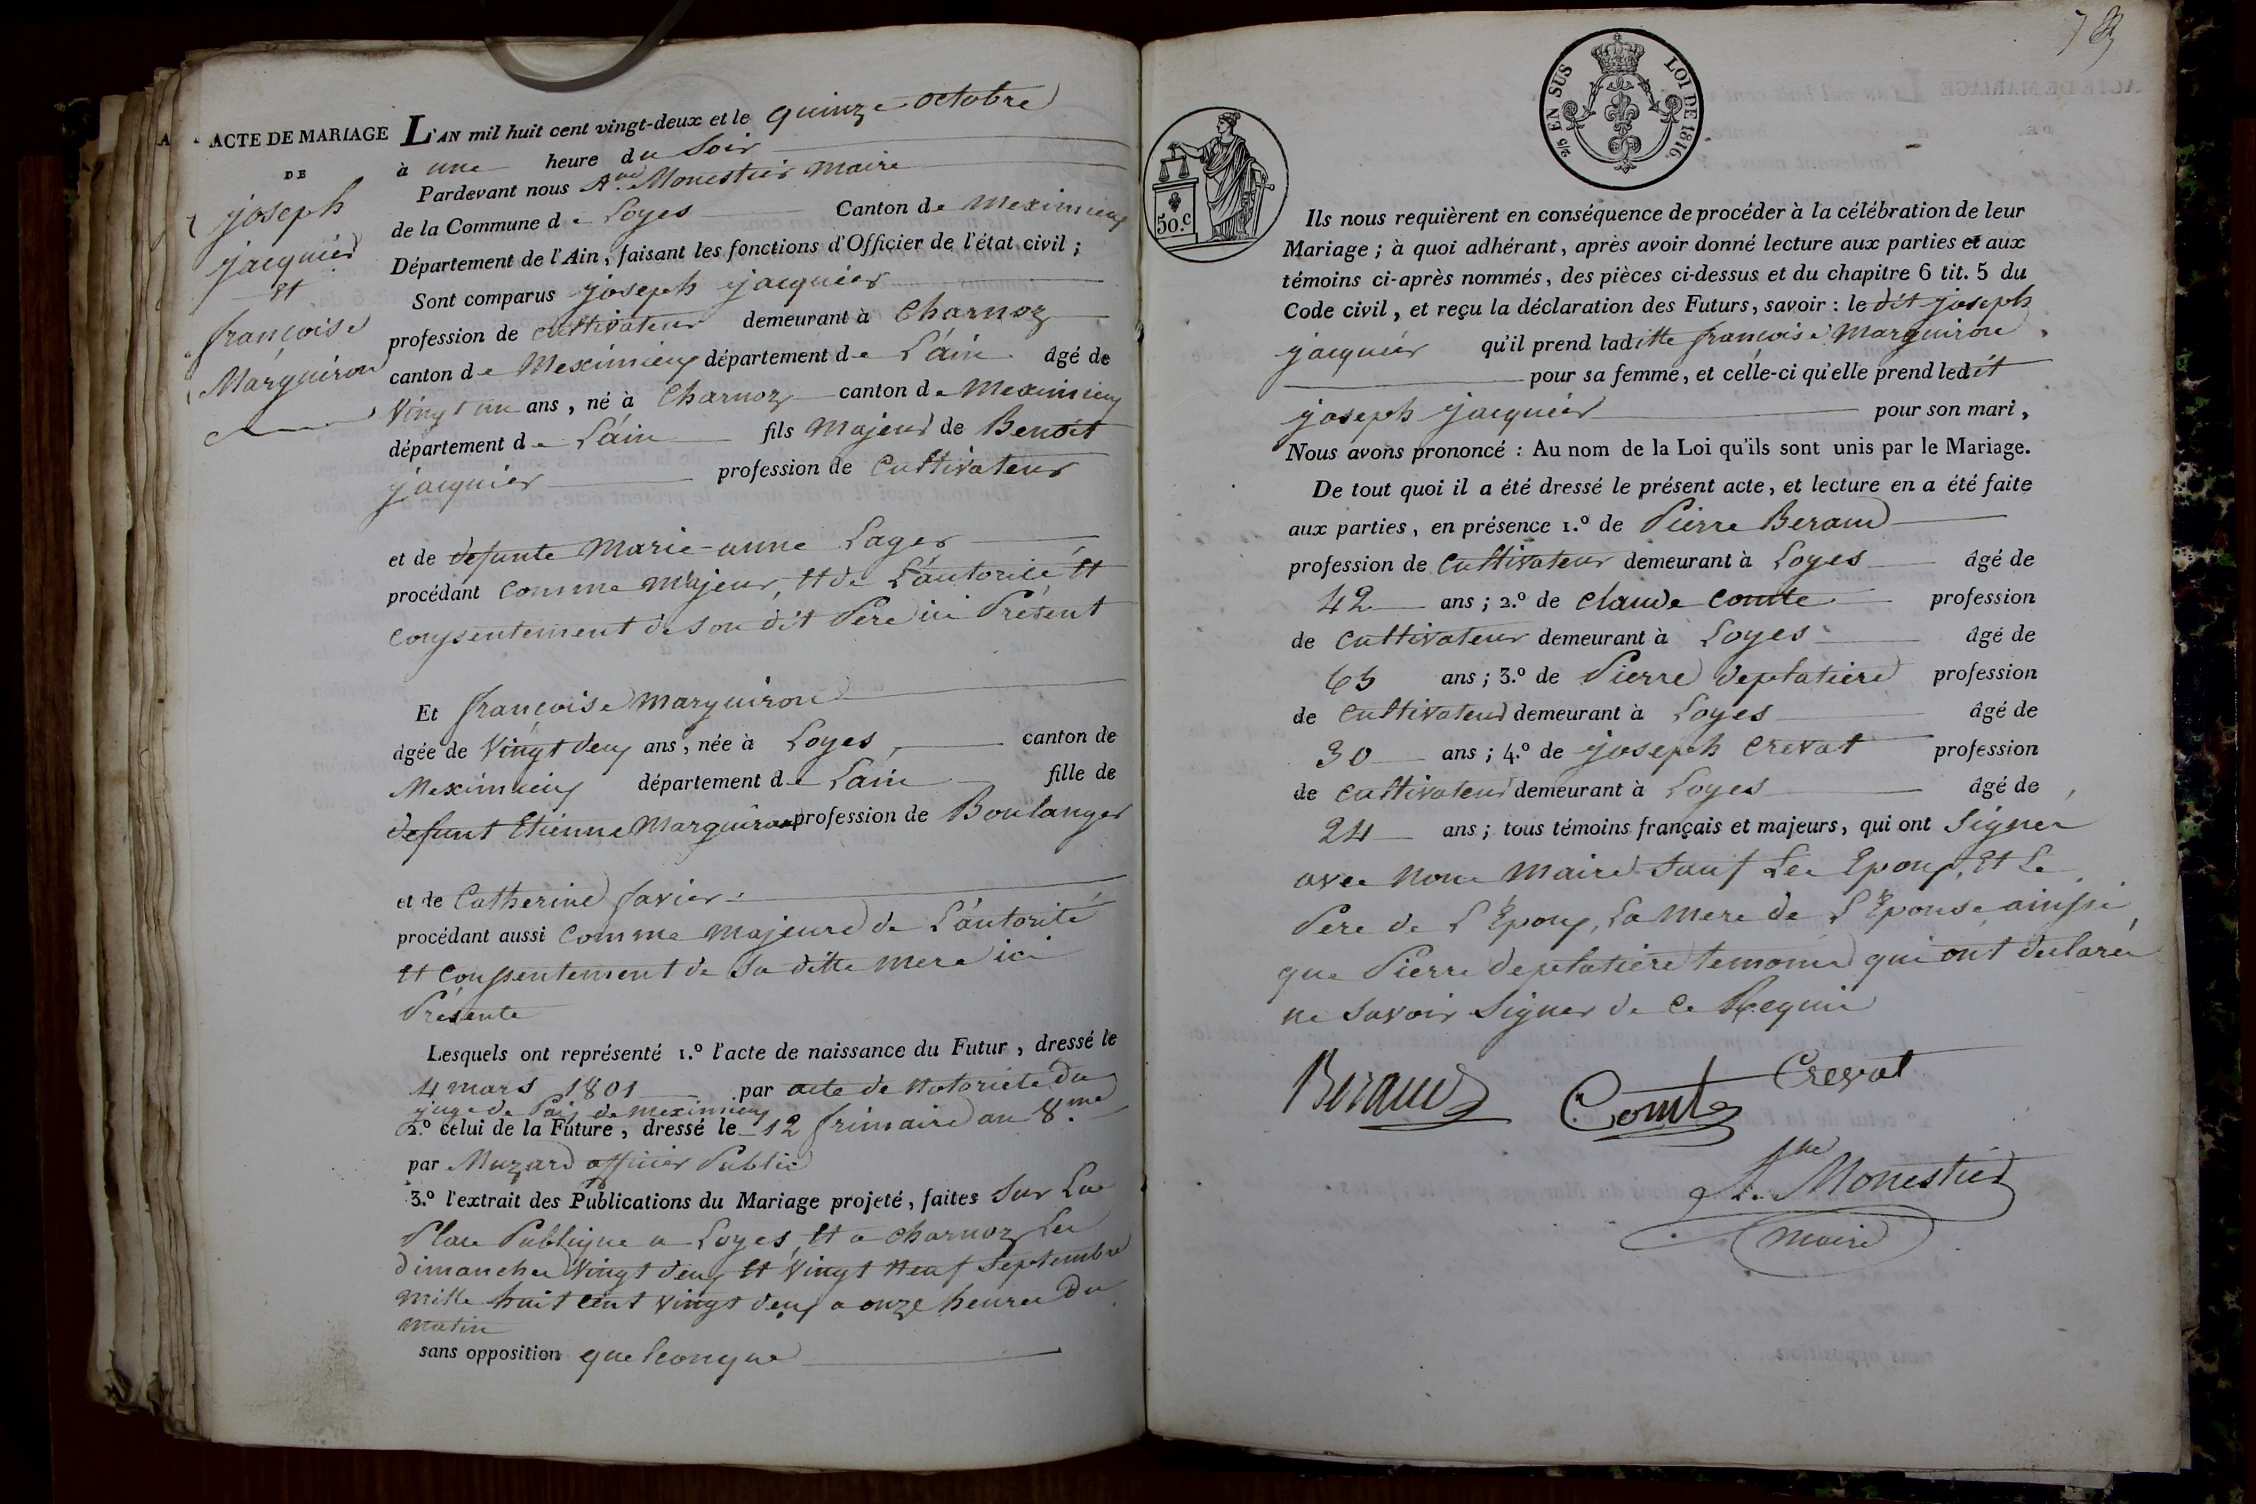 ACTE DE MARIAGE
DE
joseph
jacquier
et
françoise
Marguiron
L'AN mil huit cent vingt-deux et le quinze octobre
à une heure du soir
Pardevant nous Ane Monestier maire
de la Commune de Loyes Canton de Meximieux
Département de l'Ain, faisant les fonctions d'Officier de l'état civil ;
Sont comparus joseph jacquier
profession de cultivateur demeurant à Charnoz
canton de Meximieux département de L'ain âgé de
Vingt un ans, né à Charnoz canton de Meximieux
département de L'ain fils Majeur de Benoit
jacquier profession de Cultivateur
et de defunte Marie-anne Lager
procédant comme Majeur, et de L'autorité et
consentement de son dit Pere ici Présent
Et françoise Marguiron
âgée de Vingt deux ans, née à Loyes, canton de
Meximieux département de L'ain fille de
defunt Etienne Marguiron profession de Boulanger
et de Catherine favier.
procédant aussi comme majeure de L'autorité
et Consentement de Sa ditte Mere ici
Présente
Lesquels ont représenté 1.º l'acte de naissance du Futur, dressé le
4 mars 1801 par acte de Notorieté du
juge de Paix de Meximieux
2.º celui de la Future, dressé le 12 frimaire an 8.me
par Muzard officier Public
3.º l'extrait des Publications du Mariage projeté, faites Sur La
Place Publique a Loyes, et a Charnoz Les
dimanches Vingt deux et Vingt neuf Septembre
mille huit cent vingt deux a onze heures du
matin
sans opposition quelconque
78
2/5 EN SUS LOI DE 1816.
50.c
Ils nous requièrent en conséquence de procéder à la célébration de leur
Mariage ; à quoi adhérant, après avoir donné lecture aux parties et aux
témoins ci-après nommés, des pièces ci-dessus et du chapitre 6 tit. 5 du
Code civil, et reçu la déclaration des Futurs, savoir : le dit joseph
jacquier qu'il prend laditte françoise Marguiron
pour sa femme, et celle-ci qu'elle prend ledit
joseph jacquier pour son mari,
Nous avons prononcé : Au nom de la Loi qu'ils sont unis par le Mariage.
De tout quoi il a été dressé le présent acte, et lecture en a été faite
aux parties, en présence 1.º de Pierre Beraud
profession de Cultivateur demeurant à Loyes âgé de
42 ans ; 2.º de Claude Comte profession
de Cultivateur demeurant à Loyes âgé de
65 ans ; 3.º de Pierre deplatiere profession
de Cultivateur demeurant à Loyes âgé de
30 ans ; 4.º de joseph Crevat profession
de Cultivateur demeurant à Loyes âgé de
24 ans ; tous témoins français et majeurs, qui ont Signer
avec Nous Maire Sauf Les Epoux, et Le
Pere de L'Epoux, La Mere de L'Epouse ainssi
que Pierre deplatiere temoins qui ont declarés
ne Savoir Signer de ce Requis
Beraud Comte Crevat
Ane Monestier
maire